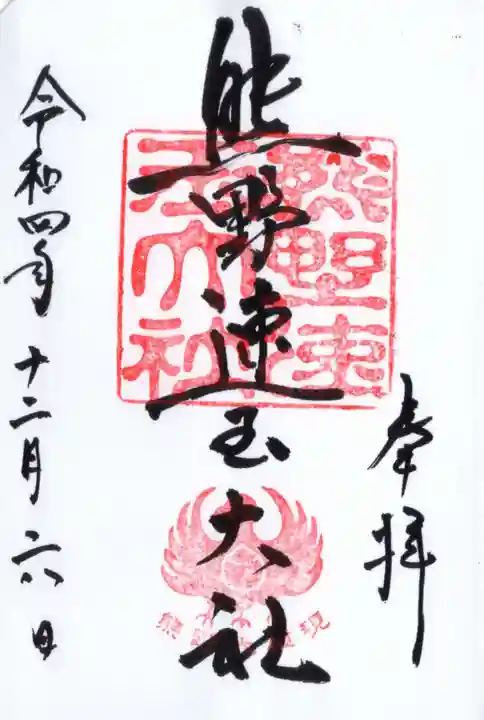 奉拝
熊野速玉大社
熊野速
玉大社
令和四年 十二月六日